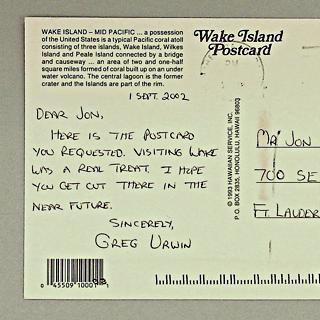 WAKE ISLAND – MID PACIFIC ... a possession
of the United States is a typical Pacific coral atoll
consisting of three islands, Wake Island, Wilkes
Island and Peale Island connected by a bridge
and causeway ... an area of two and one-half
square miles formed of coral built up on an under
water volcano. The central lagoon is the former
crater and the Islands are part of the rim.
Wake Island
Postcard
PM
1 SEPT 2002
DEAR JON,
HERE IS THE POSTCARD
YOU REQUESTED. VISITING WAKE
WAS A REAL TREAT. I HOPE
YOU GET OUT THERE IN THE
NEAR FUTURE.
SINCERELY,
GREG URWIN
© 1993 HAWAIIAN SERVICE, INC.
P.O. BOX 2835, HONOLULU, HAWAII 96803
MR JON
700 SE
FT. LAUDER
0 45509 10001